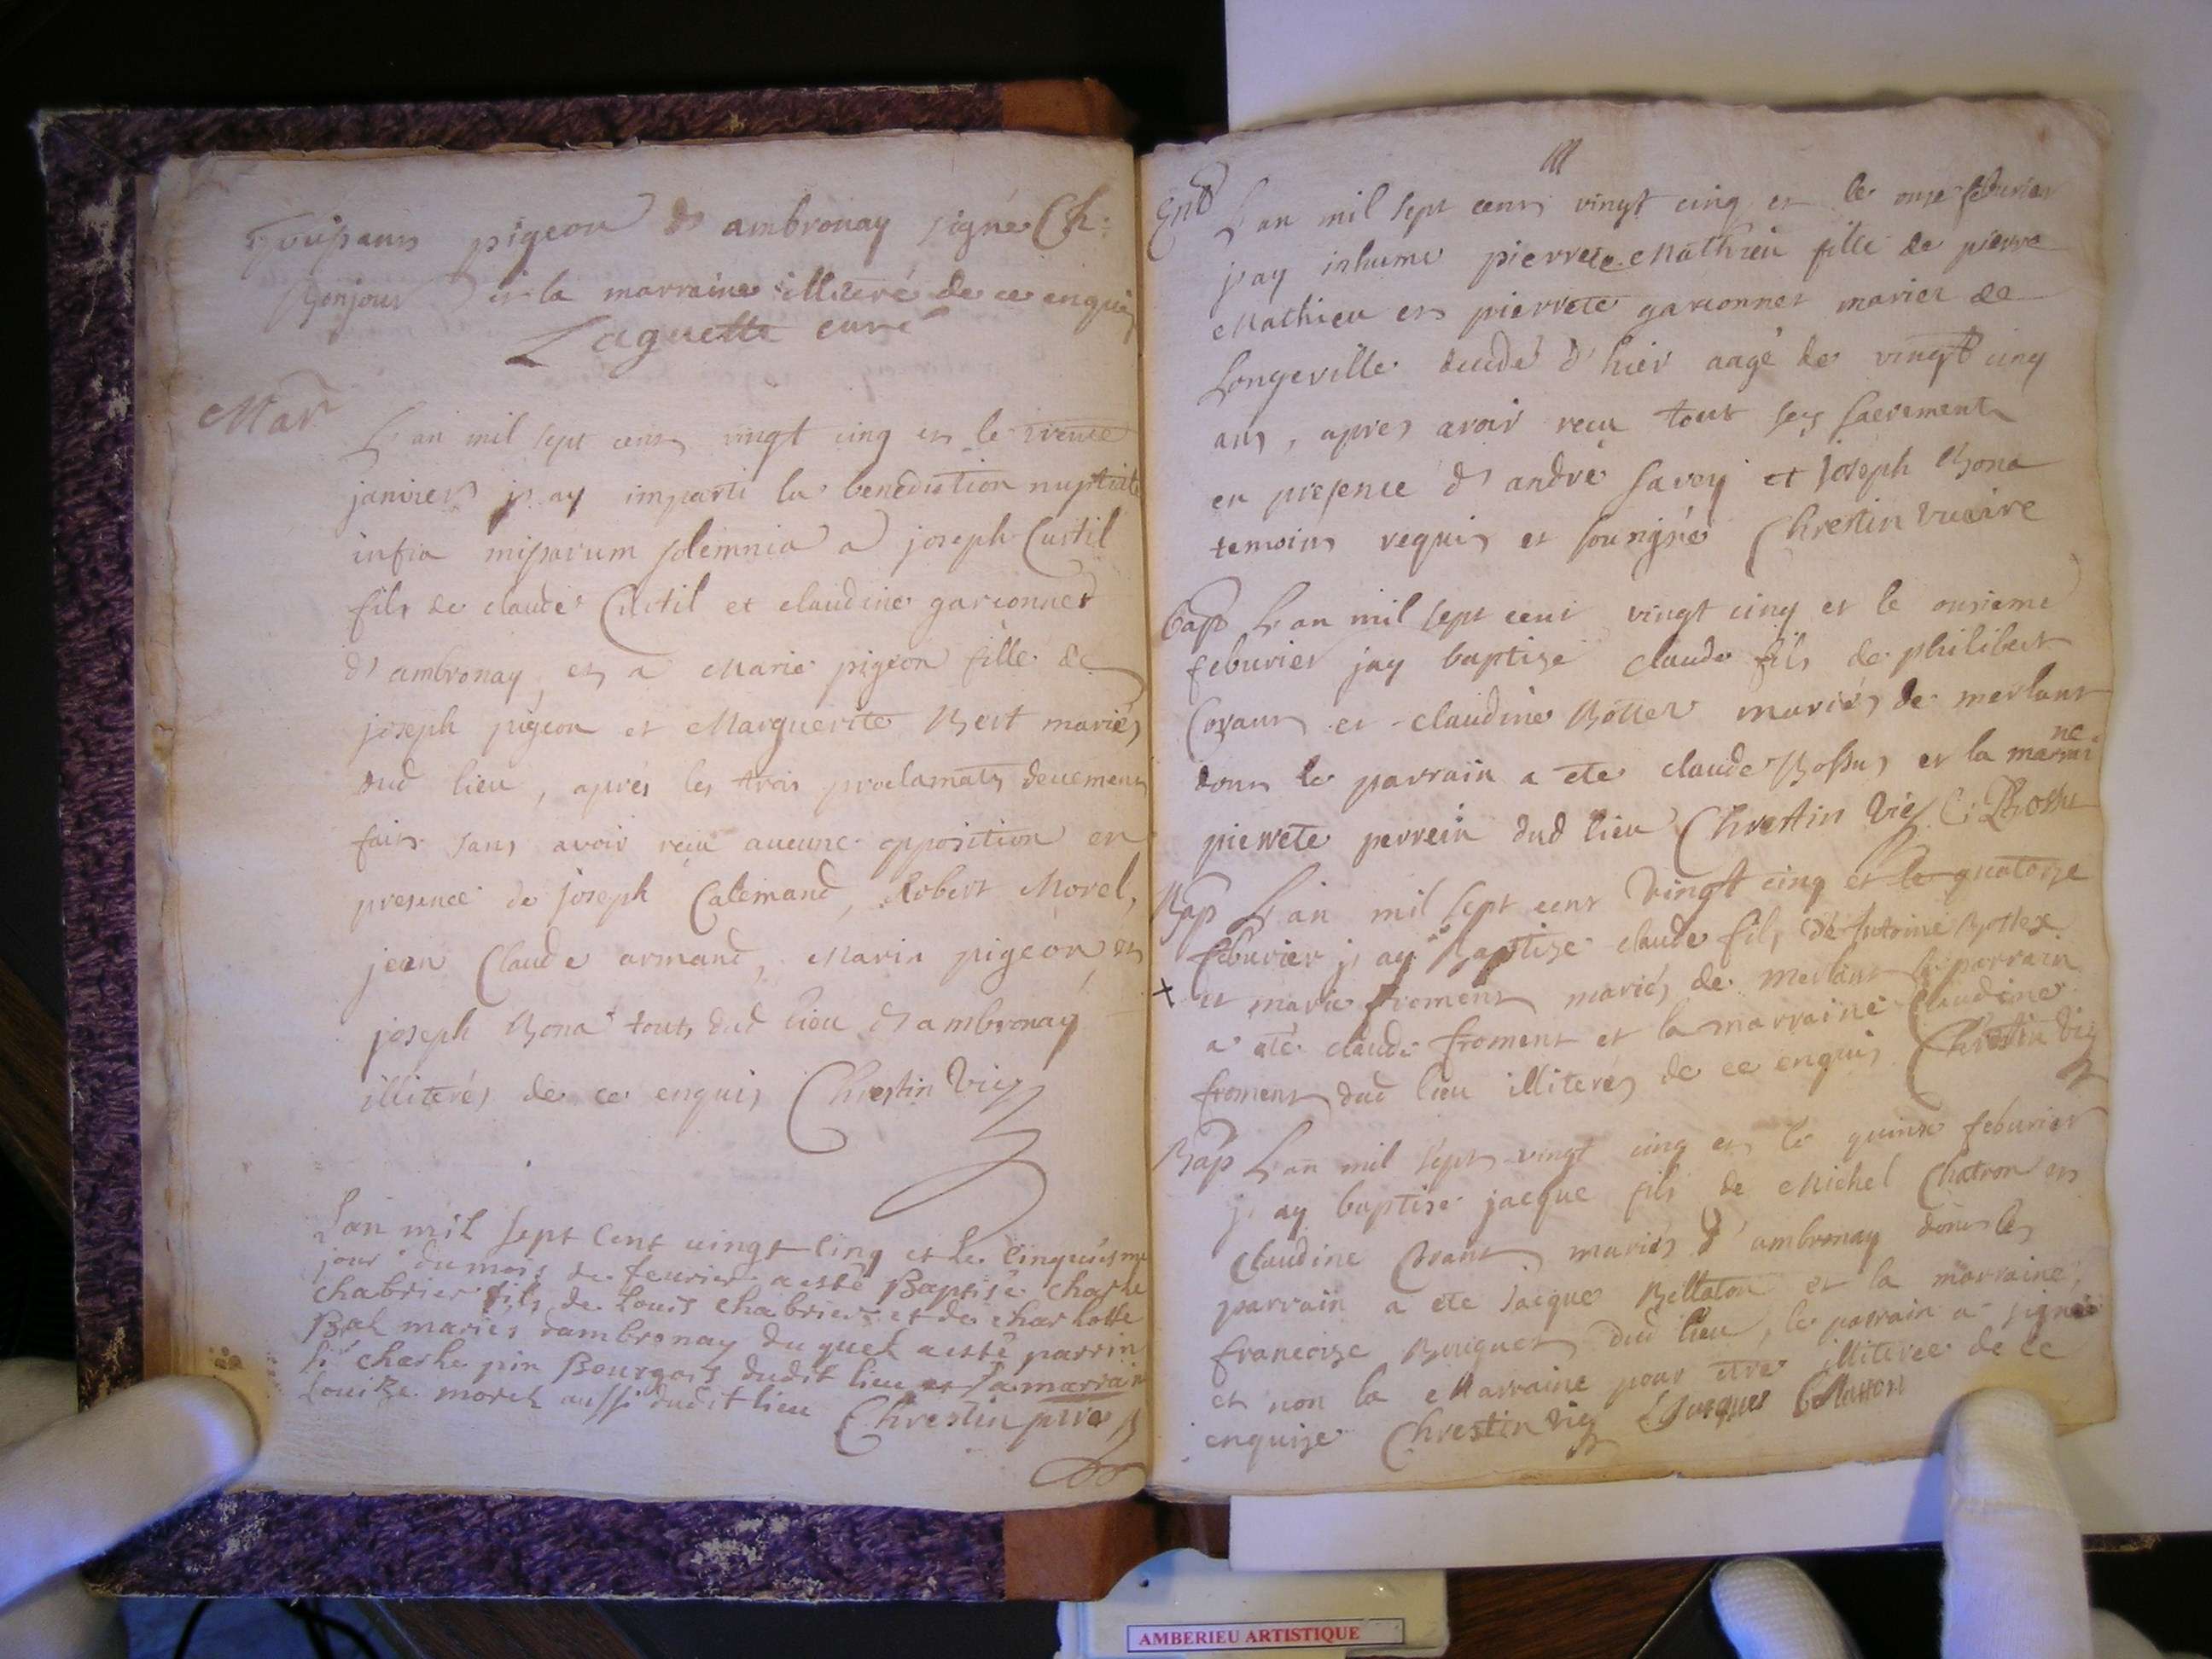 pigeon d'ambronay signé Ch:
Bonjour et la marraine illiteré de ce enquis
Laguette curé
Mar
L'an mil sept cens vingt cinq et le trente
janvier j'ay imparti la benediction nuptiale
infra missarum solemnia a joseph Custil
fils de claude Custil et claudine garconnet
d'ambronay, et a Marie pigeon fille de
joseph pigeon et Marguerite Bert mariés
dud lieu, aprés les trois proclamats deuement
faits sans avoir reçu aucune opposition en
presence de joseph Calemand, Robert Morel,
jean Claude armand, Marin pigeon, et
joseph Bona touts dud lieu d'ambronay
illiterés de ce enquis Chrestin Vic
Lan mil sept cent uingt cinq et le cinquiesme
jour du mois de feurier a esté Baptisé charle
chabrier fils de Louis chabrier et de charlotte
Bal mariés dambronay duquel a esté parrin
sr charle pin Bourgois dudit lieu et sa marrain
Louize morel aussi dudit lieu Chrestin ptre
Ent
L'an mil sept cens vingt cinq et le onze feburier
j'ay inhumé pierrete Mathieu fille de pierre
Mathieu et pierrete garconnet mariez de
Longeville decedé d'hier aagé de vingt cinq
ans, apres avoir recu tout ses sacrements
en presence d'andré savey et joseph Bona
temoins requis et sousigné Chrestin vicaire
Bap L'an mil sept cent vingt cinq et le onsieme
feburier jay baptizé claude fils de philibert
et claudine Bottex mariés de merlant
dont le parrain a ete claude Bossu, et la marai
ne
pierrete perrein dud lieu Chrestin Vic C: Bossu
Bap L'an mil sept cent vingt cinq et le quatorze
feburier j'ay Baptizé claude fils de Antoine Bottex
x et marie froment mariés de merlant le parrain
a été claude froment et la marraine Claudine
froment dud lieu illiterés de ce enquis Chrestin Vic
Bap L'an mil sept vingt cinq et le quinze feburier
j'ay baptisé jacque fils de Michel Chatron et
Claudine mariés d'ambronay dont le
parrain a eté Jacque Bellaton et la marraine
francoise Bouquet dud lieu, le parrain a signé
et non la Marraine pour etre illiteree de ce
enquize Chrestin Vic Jacques Bellaton
AMBERIEU ARTISTIQUE